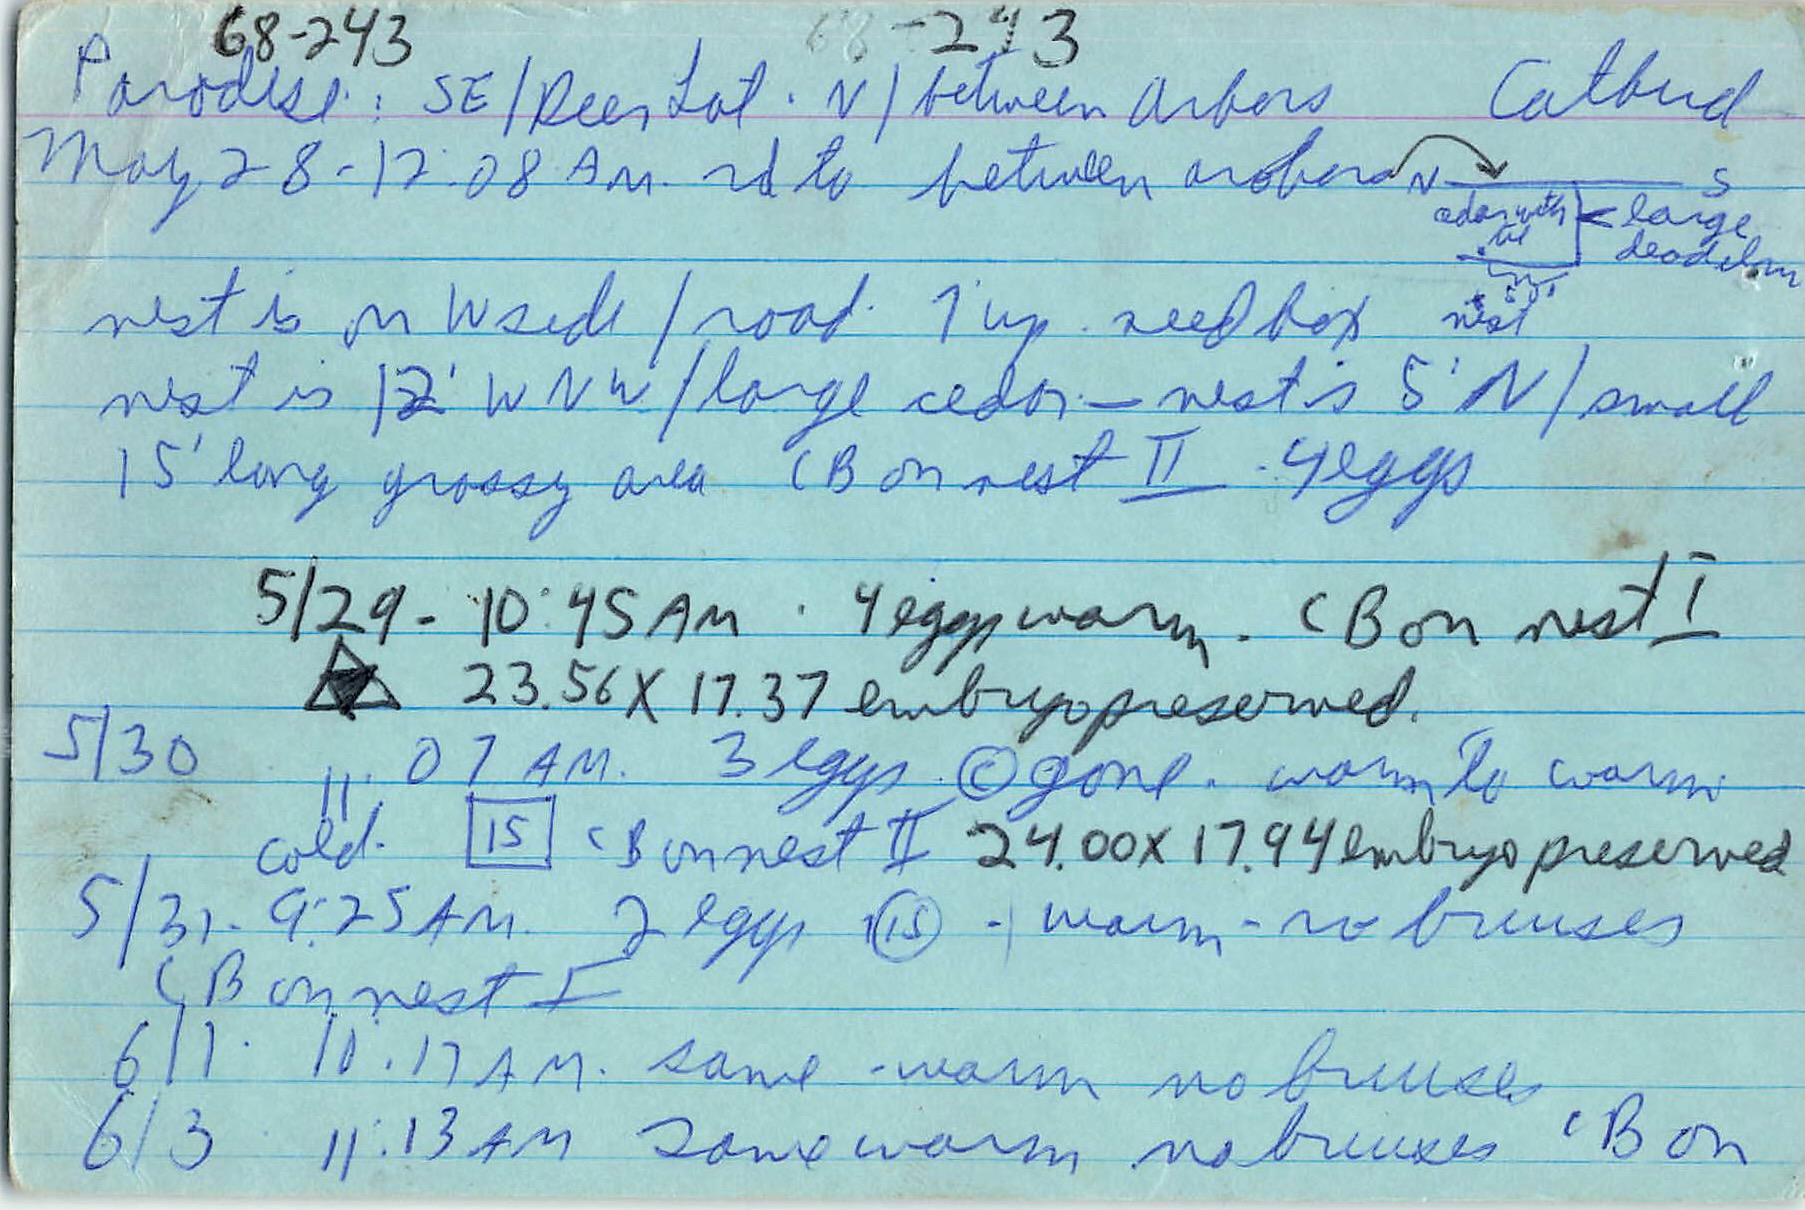 68-243 68-243
Paradise: SE/Deer Lot. N/between arbors Catbird
May 28-12:08 AM. rd to between arbors N S
cedar with large
dead elm
nest is on W side/road. 1' up. seed box nest
nest is 12' WNW/large cedar - nest is 5' N/small
15' long grassy area CB on nest II. 4 eggs
5/29- 10:45 AM. 4 eggs warm. CB on nest I
23.56 X 17.37 embryo preserved.
5/30 11:07 AM. 3 eggs. C gone. warm to warm
cold. 15 CB on nest II 24.00 X 17.94 embryo preserved
5/31- 9:25 AM. 2 eggs 15 - warm - no bruises
CB on nest I
6/1. 10:17 AM. same - warm no bruises
6/3 11:13 AM same warm no bruises CB on